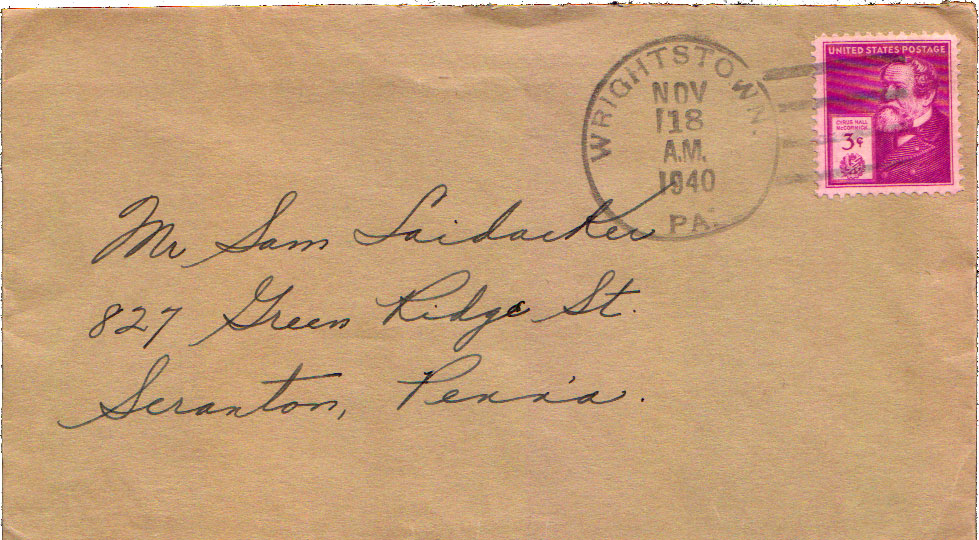 UNITED STATES POSTAGE
CYRUS HALL
McCORMICK
3¢
WRIGHTSTOWN.
NOV
18
A.M.
1940
PA.
Mr Sam Saidacker
827 Green Ridge St.
Scranton, Penn'a.